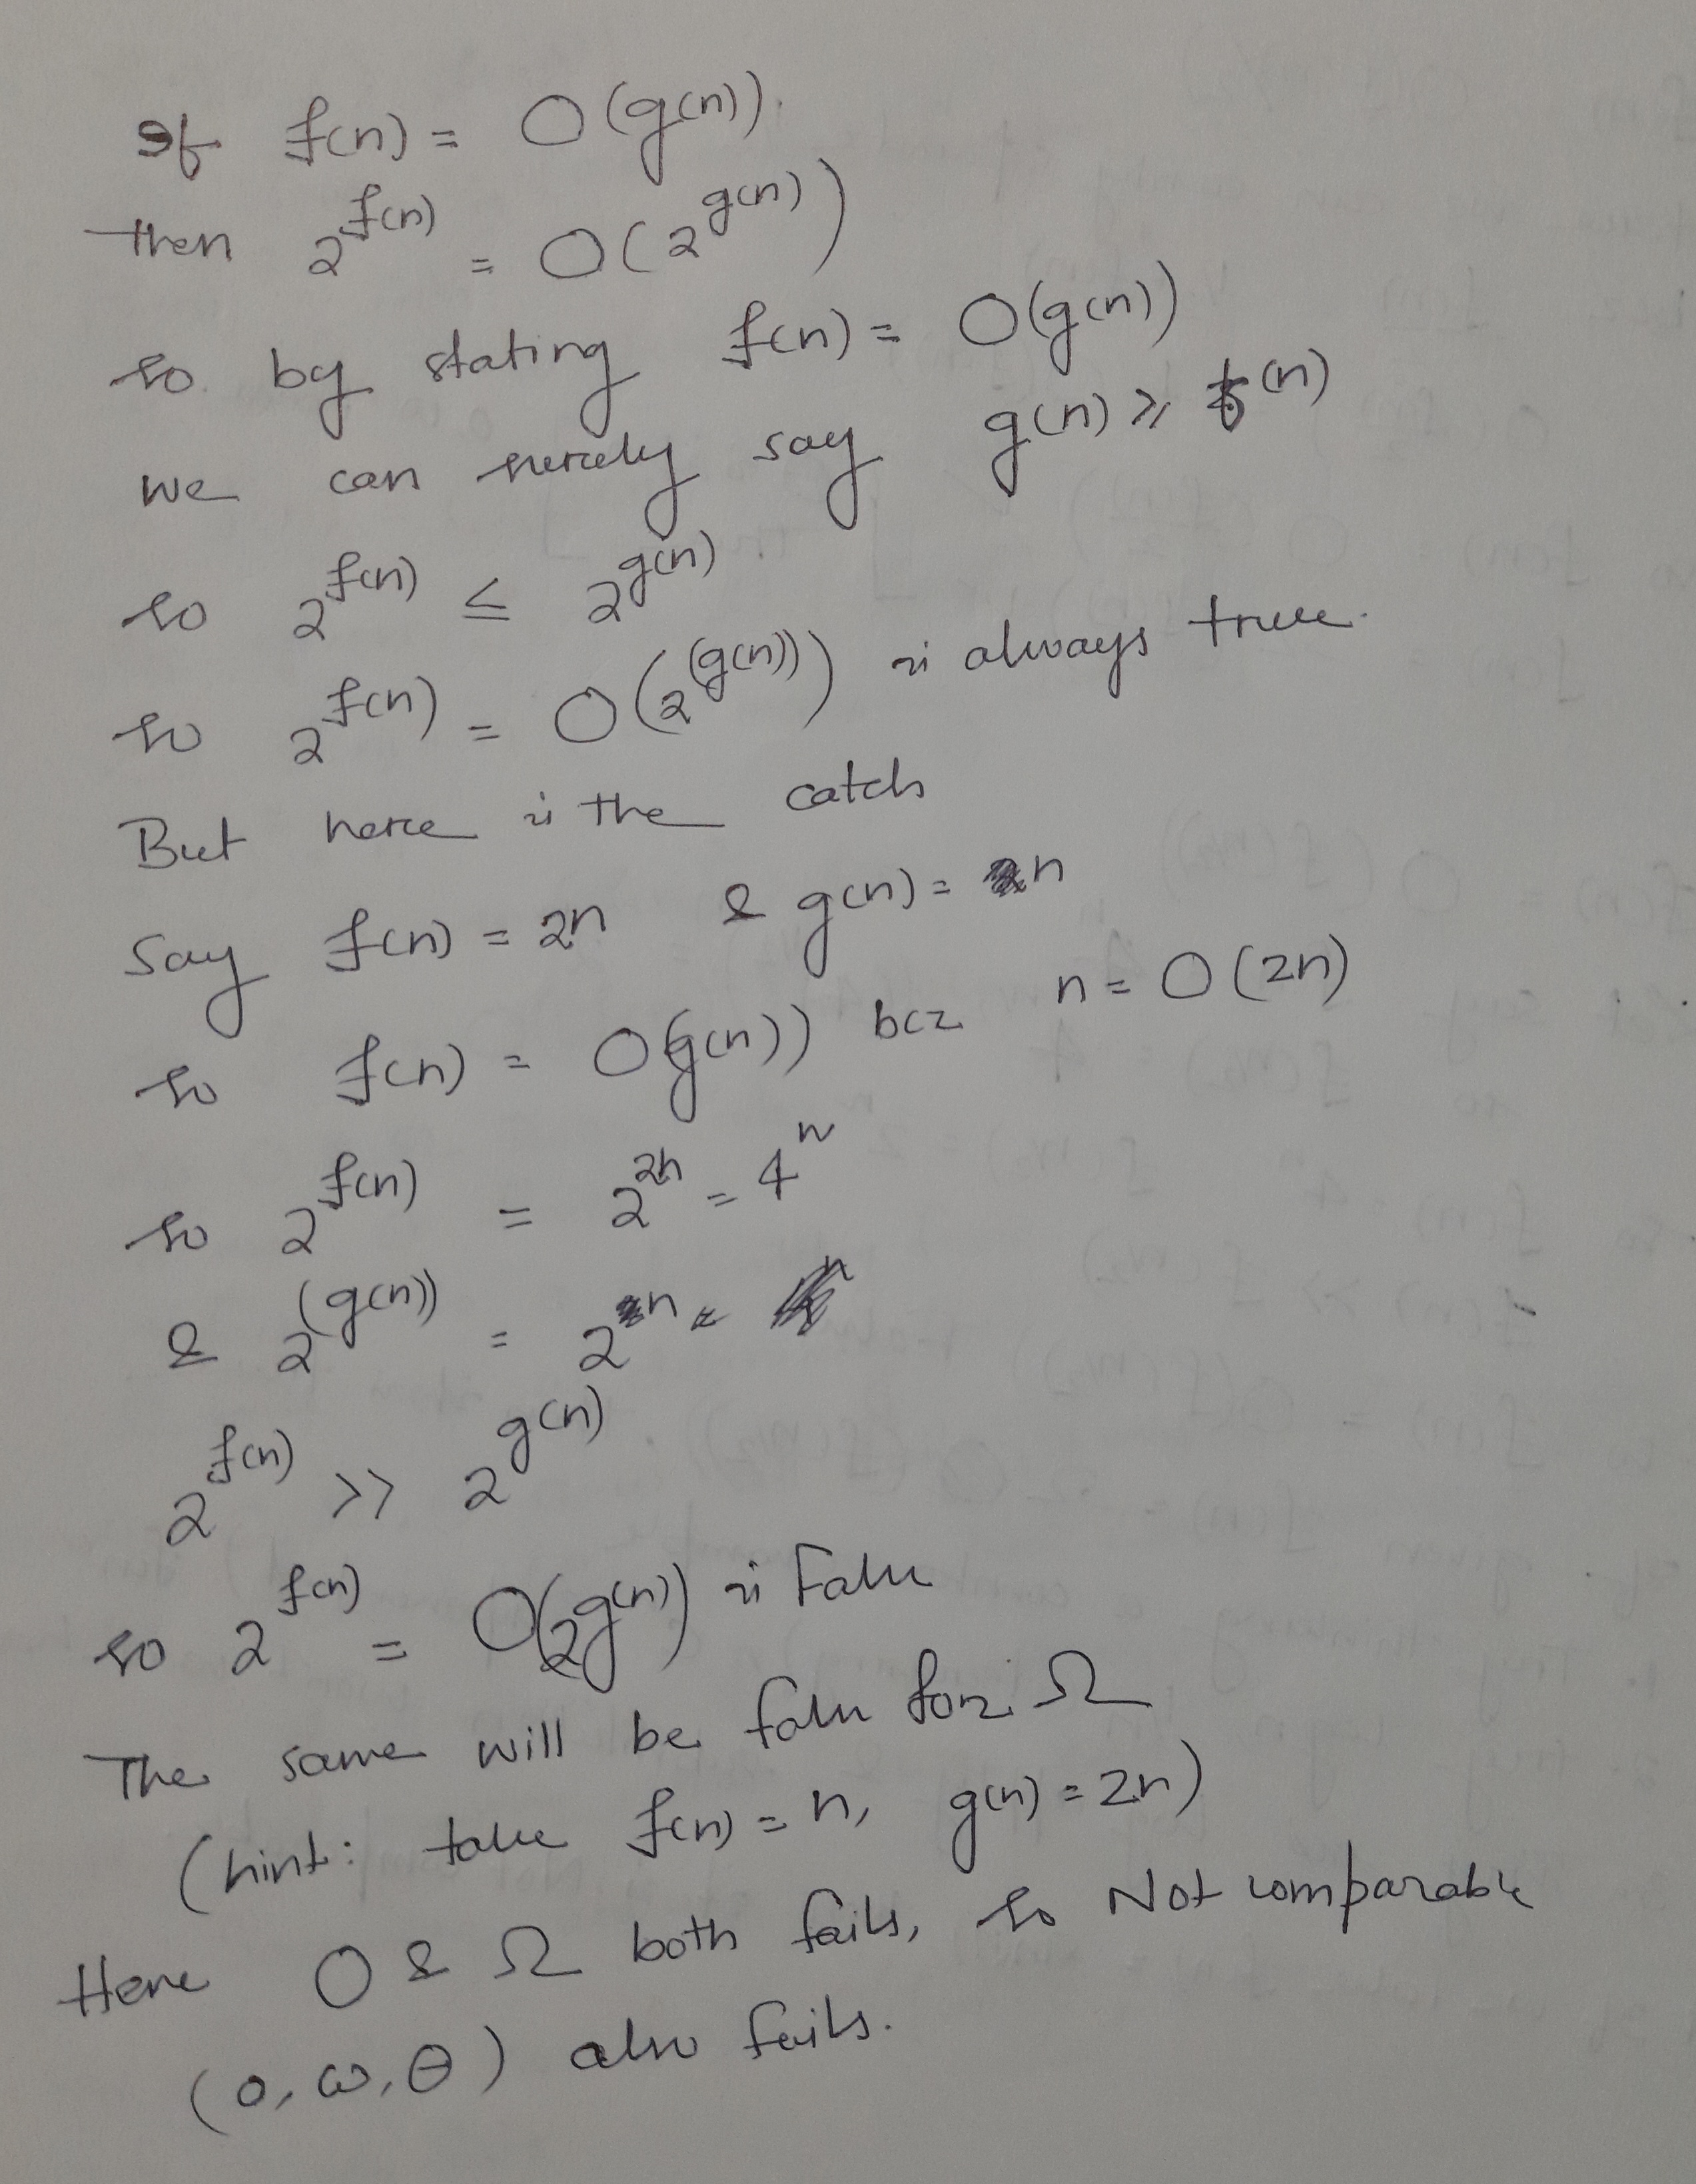 If f(n) = O(g(n)).
then 2^f(n) = O(2^g(n))
so by stating f(n) = O(g(n))
we can merely say g(n) ≥ f(n)
so 2^f(n) ≤ 2^g(n)
so 2^f(n) = O(2^(g(n))) is always true.
But here is the catch
Say f(n) = 2n & g(n) = n
so f(n) = O(g(n)) bcz n = O(2n)
so 2^f(n) = 2^2n = 4^n
& 2^(g(n)) = 2^n =
2^f(n) >> 2^g(n)
so 2^f(n) = O(2^g(n)) is False
The same will be false for Ω
(hint: take f(n) = n, g(n) = 2n)
Here O & Ω both fails, so Not comparable
(o, ω, θ) also fails.